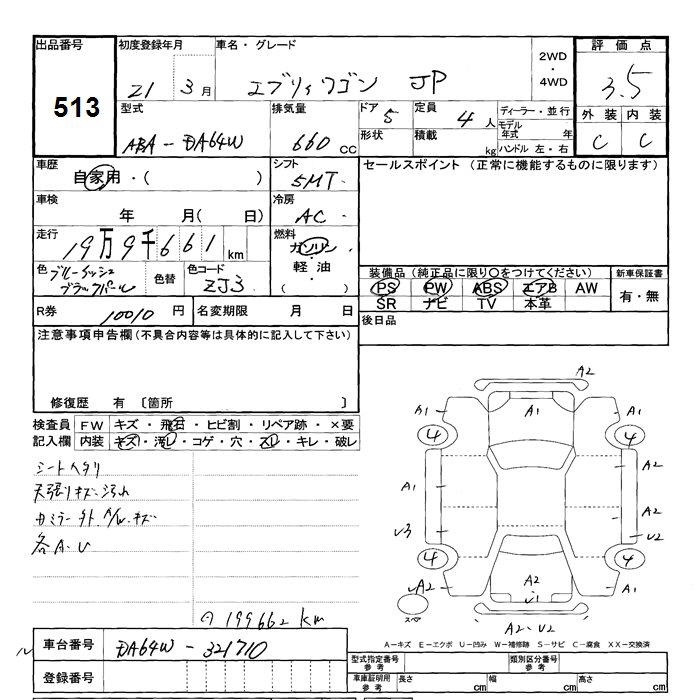 出品番号
513
初度登録年月
21 3月
車名・グレード
エブリィワゴン JP
2WD
・
4WD
評価点
3.5
外装 内装
C C
型式
ABA-DA64W
排気量
660 CC
ドア 5
形状
定員 4人
積載 kg
ディーラー・並行
モデル
年式 年
ハンドル 左・右
車歴
自家用・( )
シフト
5MT
セールスポイント (正常に機能するものに限ります)
車検
年 月( 日)
冷房
AC
走行
19万9千661km
燃料
ガソリン
・
軽油
・
( )
色
色替
色コード
ZJ3
装備品(純正品に限り○をつけてください)
PS PW ABS エアB AW
SR ナビ TV 本革
新車保証書
有・無
R券 10010 円
名変期限 月 日
後日品
注意事項申告欄(不具合内容等は具体的に記入して下さい)
修復歴 有 〔箇所 〕
検査員
記入欄
FW キズ・飛石・ヒビ割・リペア跡・×要
内装 キズ・汚レ・コゲ・穴・スレ・キレ・破レ
シートヘタリ
天張りキズ・汚れ
各A・U
199662 km
A2
A1 A1 A1
4 4
A2
A1
A2
U3 U2
4 4
A2 A2 A1
U1
スペア
A2-U2
A-キズ E-エクボ U-凹み W-補修跡 S-サビ C-腐食 XX-交換済
車台番号
DA64W-321710
登録番号
型式指定番号
参考
類別区分番号
参考
車庫証明用
参考
長さ cm 幅 cm 高さ cm